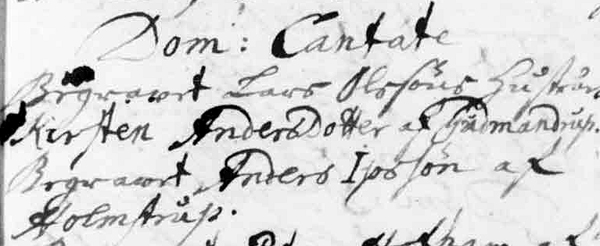 Dom: Cantate
Begravet Lars Olssøns Hustru
Kirsten AndersDotter af Gudmandrup.
Begravet Anders Ipssøn af
Holmstrup.